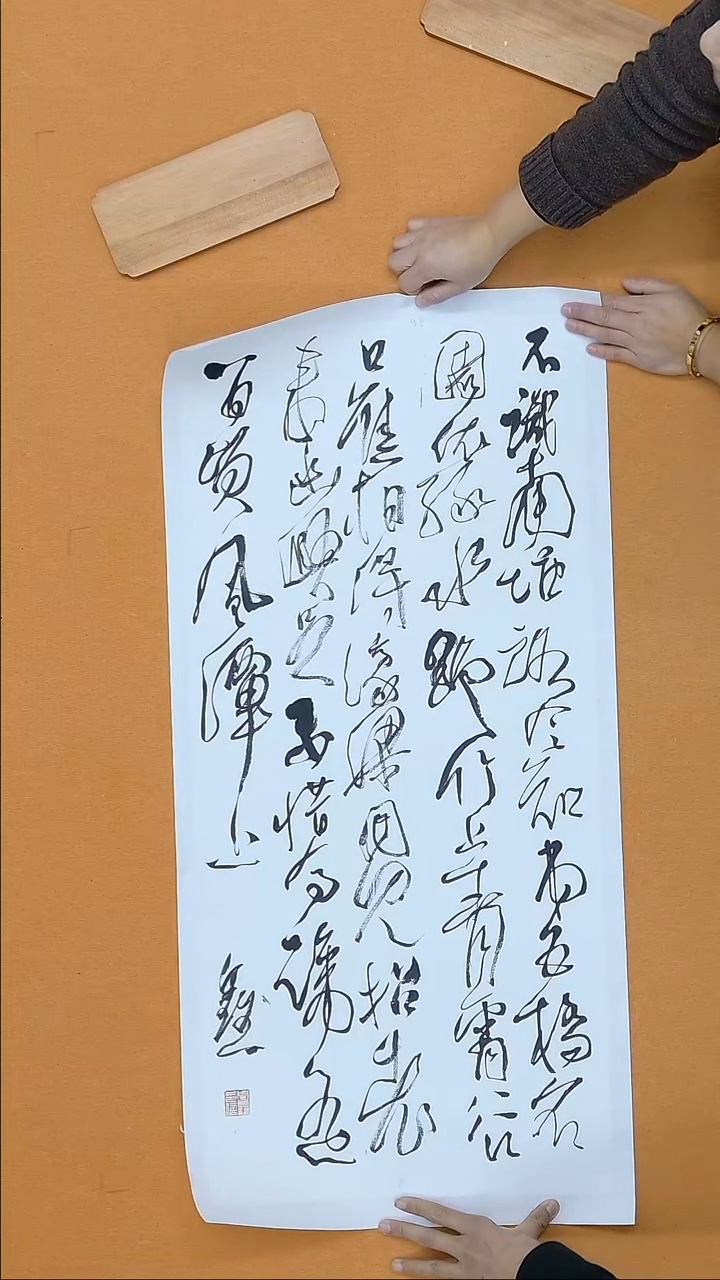 不識南塘路今知第五橋名
園依綠水野竹上青霄谷
口舊相得濠梁同見招
幽興未惜馬蹄遙
百頃風潭上